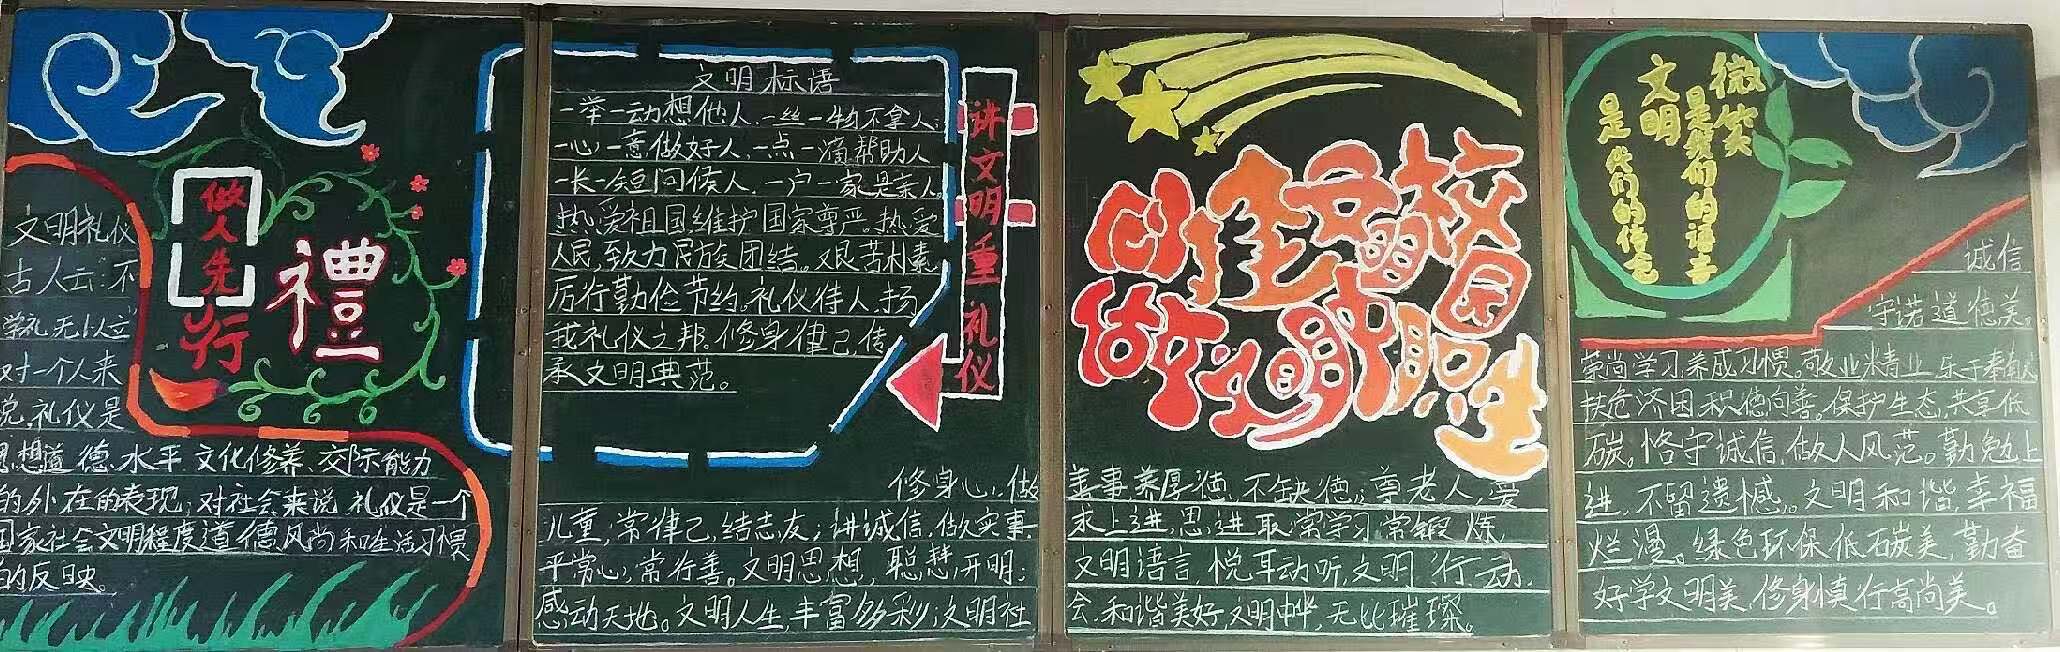 文明礼仪
古人云:不
学礼无以立
对一个人来
说,礼仪是
思想道德水平、文化修养、交际能力
的外在的表现;对社会来说,礼仪是一个
国家社会文明程度、道德风尚和生活习惯
的反映。
做人先
行
禮
文明标语
一举一动想他人,一丝一物不拿人;
一心一意做好人,一点一滴帮助人
一长一短问候人,一户一家是亲人。
热爱祖国维护国家尊严。热爱
人民,致力民族团结。艰苦朴素
厉行勤俭节约。礼仪待人,扬
我礼仪之邦。修身律己,传
承文明典范。
讲文明重礼仪
创建文明校园
做文明
修身心,做善事,养厚德,不缺德;尊老人,爱
儿童;常律己,结志友;讲诚信,做实事,求上进,思进取,常学习,常锻炼
平常心,常行善。文明思想,聪慧开明;文明语言,悦耳动听,文明行动,
感动天地。文明人生,丰富多彩;文明社会,和谐美好,文明中华,无比璀璨。
微笑
是我们的语言
文明
是我们的信念
诚信
守诺道德美。
崇尚学习养成习惯。敬业精业,乐于奉献,
扶危济困积德向善。保护生态,共享低
碳。恪守诚信,做人风范。勤勉上
进,不留遗憾。文明和谐,幸福
烂漫。绿色环保低碳美,勤奋
好学文明美,修身慎行高尚美。